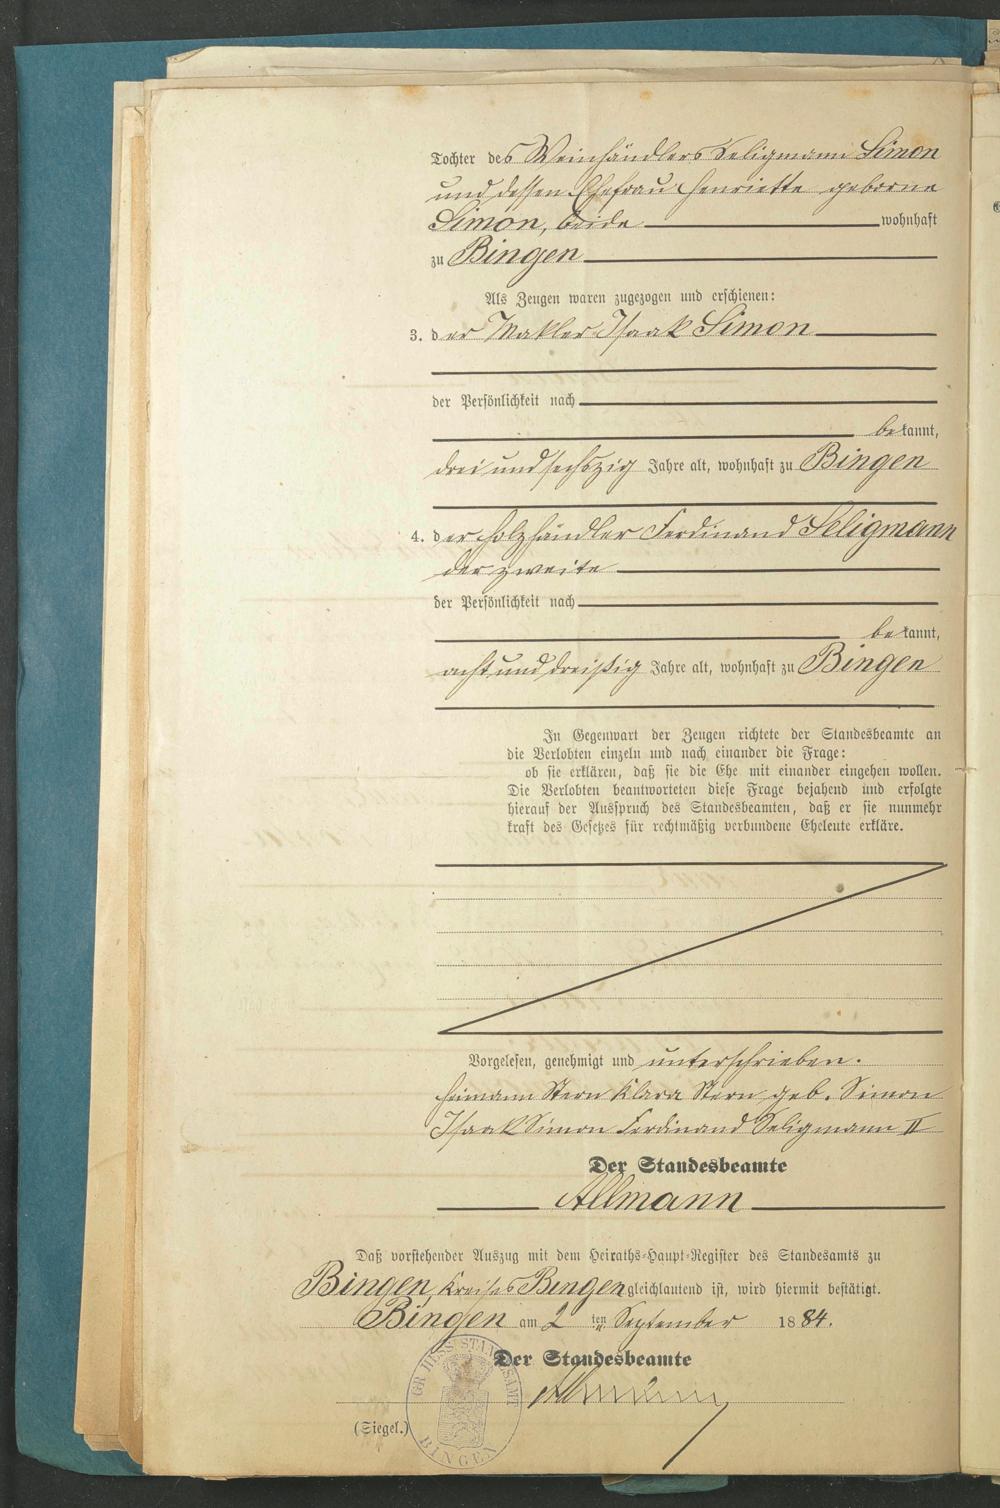 Tochter des Weinhändlers Seligmann Simon
und dessen Ehefrau Henriette geborne
Simon, beide wohnhaft
zu Bingen
Als Zeugen waren zugezogen und erschienen:
3. der Makler Isaak Simon
der Persönlichkeit nach
bekannt,
drei und sechszig Jahre alt, wohnhaft zu Bingen
4. der Holzhändler Ferdinand Seligmann
der zweite
der Persönlichkeit nach
bekannt,
acht und dreißig Jahre alt, wohnhaft zu Bingen
In Gegenwart der Zeugen richtete der Standesbeamte an
die Verlobten einzeln und nach einander die Frage:
ob sie erklären, daß sie die Ehe mit einander eingehen wollen.
Die Verlobten beantworteten diese Frage bejahend und erfolgte
hierauf der Ausspruch des Standesbeamten, daß er sie nunmehr
kraft des Gesetzes für rechtmäßig verbundene Eheleute erkläre.
Vorgelesen, genehmigt und unterschrieben.
Heimann Stern Klara Stern geb. Simon
Isaak Simon Ferdinand Seligmann II
Der Standesbeamte
Allmann
Daß vorstehender Auszug mit dem Heiraths-Haupt-Register des Standesamts zu
Bingen, Kreises Bingen gleichlautend ist, wird hiermit bestätigt.
Bingen am 2 ten September 1884.
Der Standesbeamte
Allmann
(Siegel.)
GR HESS STANDESAMT
BINGEN